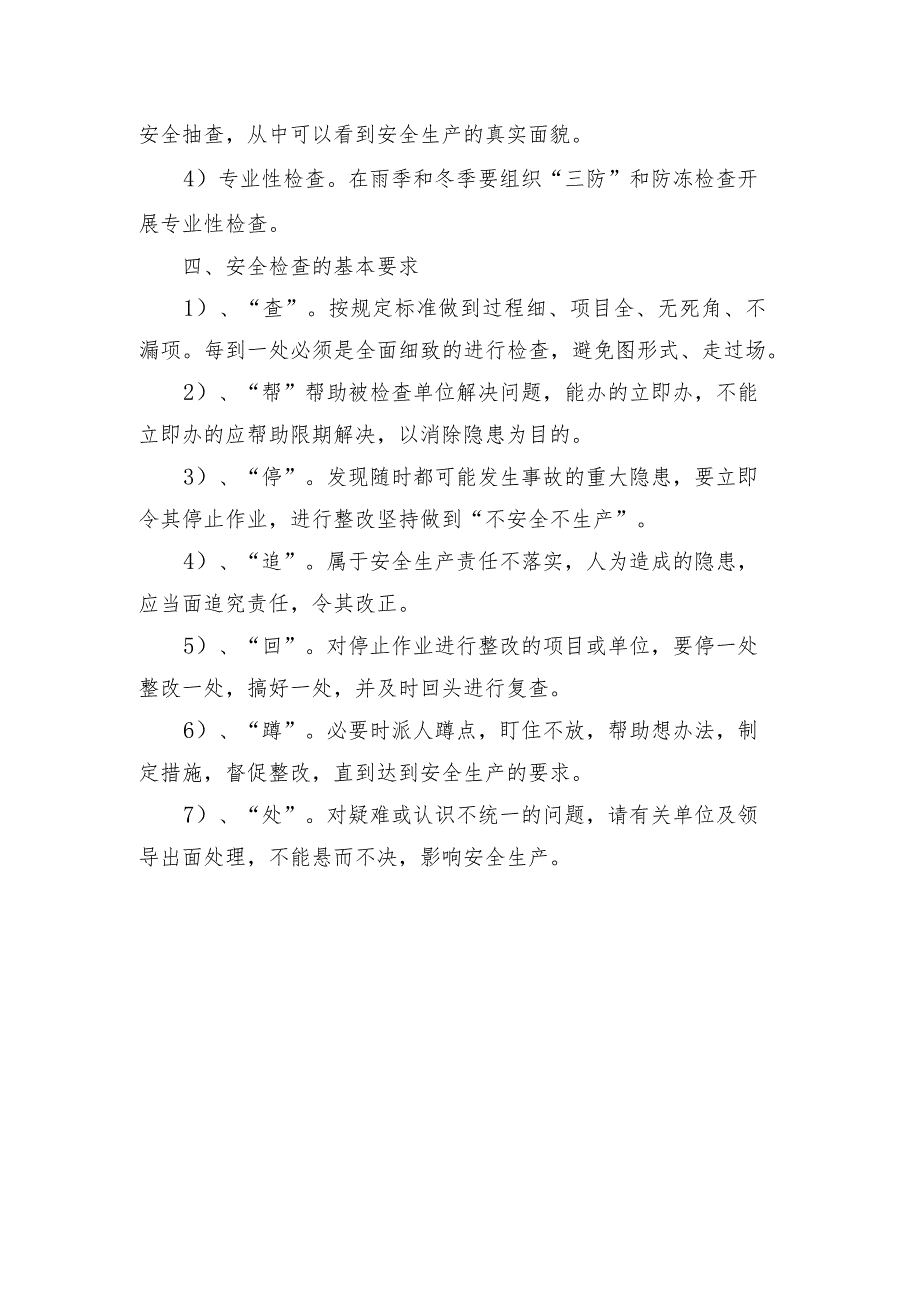 安全抽查，从中可以看到安全生产的真实面貌。
4）专业性检查。在雨季和冬季要组织“三防”和防冻检查开
展专业性检查。
四、安全检查的基本要求
1）、“查”。按规定标准做到过程细、项目全、无死角、不
漏项。每到一处必须是全面细致的进行检查，避免图形式、走过场。
2）、“帮”帮助被检查单位解决问题，能办的立即办，不能
立即办的应帮助限期解决，以消除隐患为目的。
3）、“停”。发现随时都可能发生事故的重大隐患，要立即
令其停止作业，进行整改坚持做到“不安全不生产”。
4）、“追”。属于安全生产责任不落实，人为造成的隐患，
应当面追究责任，令其改正。
5）、“回”。对停止作业进行整改的项目或单位，要停一处
整改一处，搞好一处，并及时回头进行复查。
6）、“蹲”。必要时派人蹲点，盯住不放，帮助想办法，制
定措施，督促整改，直到达到安全生产的要求。
7）、“处”。对疑难或认识不统一的问题，请有关单位及领
导出面处理，不能悬而不决，影响安全生产。